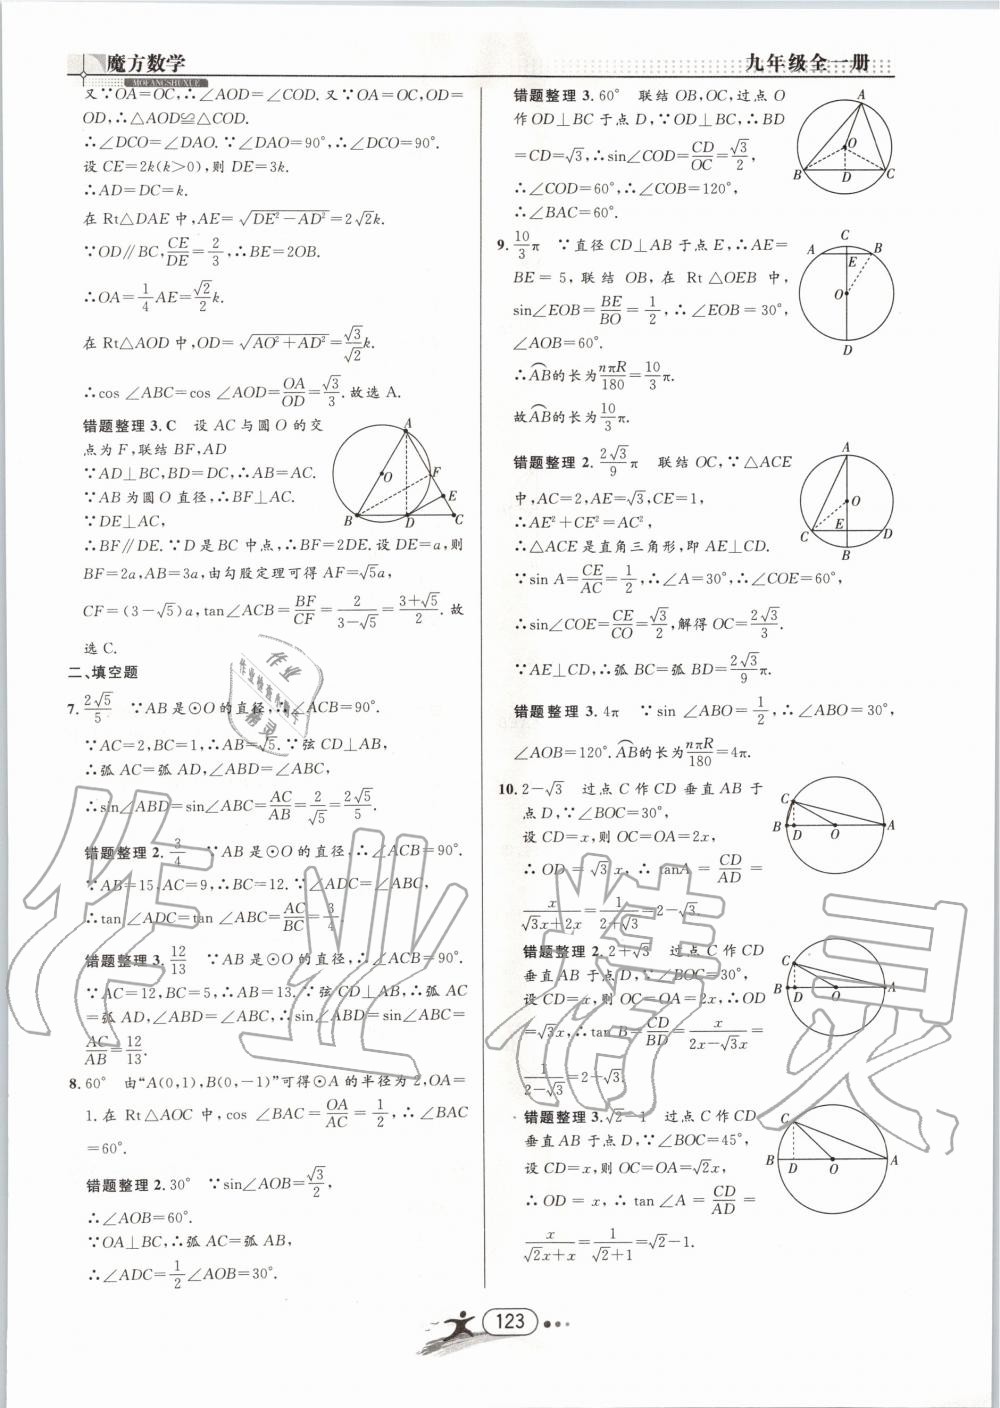 魔方数学
MOFANGSHUXUE
九年级全一册
又∵OA=OC,∴∠AOD=∠COD.又∵OA=OC,OD=
OD,∴△AOD≌△COD.
∴∠DCO=∠DAO.∵∠DAO=90°,∴∠DCO=90°.
设 CE=2k(k>0),则 DE=3k.
∴AD=DC=k.
在 Rt△DAE 中,AE=√(DE²-AD²)=2√2k.
∵OD∥BC,CE/DE=2/3,∴BE=2OB.
∴OA=1/4AE=√2/2k.
在 Rt△AOD 中,OD=√(AO²+AD²)=√3/√2k.
∴cos∠ABC=cos∠AOD=OA/OD=√3/3.故选 A.
错题整理 3.C 设 AC 与圆 O 的交
点为 F,联结 BF,AD
∵AD⊥BC,BD=DC,∴AB=AC.
∵AB 为圆 O 直径,∴BF⊥AC.
∵DE⊥AC,
∴BF∥DE.∵D 是 BC 中点,∴BF=2DE.设 DE=a,则
BF=2a,AB=3a,由勾股定理可得 AF=√5a,
CF=(3-√5)a,tan∠ACB=BF/CF=2/(3-√5)=(3+√5)/2.故
选 C.
A
O
F
E
B
D
C
二、填空题
7. 2√5/5 ∵AB 是⊙O 的直径,∴∠ACB=90°.
∵AC=2,BC=1,∴AB=√5.∵弦 CD⊥AB,
∴弧 AC=弧 AD,∠ABD=∠ABC,
∴sin∠ABD=sin∠ABC=AC/AB=2/√5=2√5/5.
错题整理 2. 3/4 ∵AB 是⊙O 的直径,∴∠ACB=90°.
∵AB=15,AC=9,∴BC=12.∵∠ADC=∠ABC,
∴tan∠ADC=tan∠ABC=AC/BC=3/4.
错题整理 3. 12/13 ∵AB 是⊙O 的直径,∴∠ACB=90°.
∵AC=12,BC=5,∴AB=13.∵弦 CD⊥AB,∴弧 AC
=弧 AD,∠ABD=∠ABC,∴sin∠ABD=sin∠ABC=
AC/AB=12/13.
8. 60° 由“A(0,1),B(0,-1)”可得⊙A 的半径为 2,OA=
1.在 Rt△AOC 中,cos∠BAC=OA/AC=1/2,∴∠BAC
=60°.
错题整理 2. 30° ∵sin∠AOB=√3/2,
∴∠AOB=60°.
∵OA⊥BC,∴弧 AC=弧 AB,
∴∠ADC=1/2∠AOB=30°.
错题整理 3. 60° 联结 OB,OC,过点 O
作 OD⊥BC 于点 D,∵OD⊥BC,∴BD
=CD=√3,∴sin∠COD=CD/OC=√3/2,
∴∠COD=60°,∴∠COB=120°,
∴∠BAC=60°.
A
O
B
D
C
9. 10/3π ∵直径 CD⊥AB 于点 E,∴AE=
BE=5,联结 OB,在 Rt△OEB 中,
sin∠EOB=BE/BO=1/2,∴∠EOB=30°,
∠AOB=60°.
∴AB的长为nπR/180=10/3π.
故AB的长为10/3π.
C
A
B
E
O
D
错题整理 2. 2√3/9π 联结 OC,∵△ACE
中,AC=2,AE=√3,CE=1,
∴AE²+CE²=AC²,
∴△ACE 是直角三角形,即 AE⊥CD.
∵sin A=CE/AC=1/2,∴∠A=30°,∴∠COE=60°,
∴sin∠COE=CE/CO=√3/2,解得 OC=2√3/3.
∵AE⊥CD,∴弧 BC=弧 BD=2√3/9π.
A
O
C
E
D
B
错题整理 3. 4π ∵sin∠ABO=1/2,∴∠ABO=30°,
∠AOB=120°.AB的长为nπR/180=4π.
10. 2-√3 过点 C 作 CD 垂直 AB 于
点 D,∵∠BOC=30°,
设 CD=x,则 OC=OA=2x,
∴OD=√3x,∴tanA=CD/AD=
x/(√3x+2x)=1/(2+√3)=2-√3.
C
B
D
O
A
错题整理 2. 2+√3 过点 C 作 CD
垂直 AB 于点 D,∵∠BOC=30°,
设 CD=x,则 OC=OA=2x,∴OD
=√3x,∴tan B=CD/BD=x/(2x-√3x)=
1/(2-√3)=2+√3.
C
B
D
O
A
错题整理 3. √2-1 过点 C 作 CD
垂直 AB 于点 D,∵∠BOC=45°,
设 CD=x,则 OC=OA=√2x,
∴OD=x,∴tan∠A=CD/AD=
x/(√2x+x)=1/(√2+1)=√2-1.
C
B
D
O
A
作业精灵
123